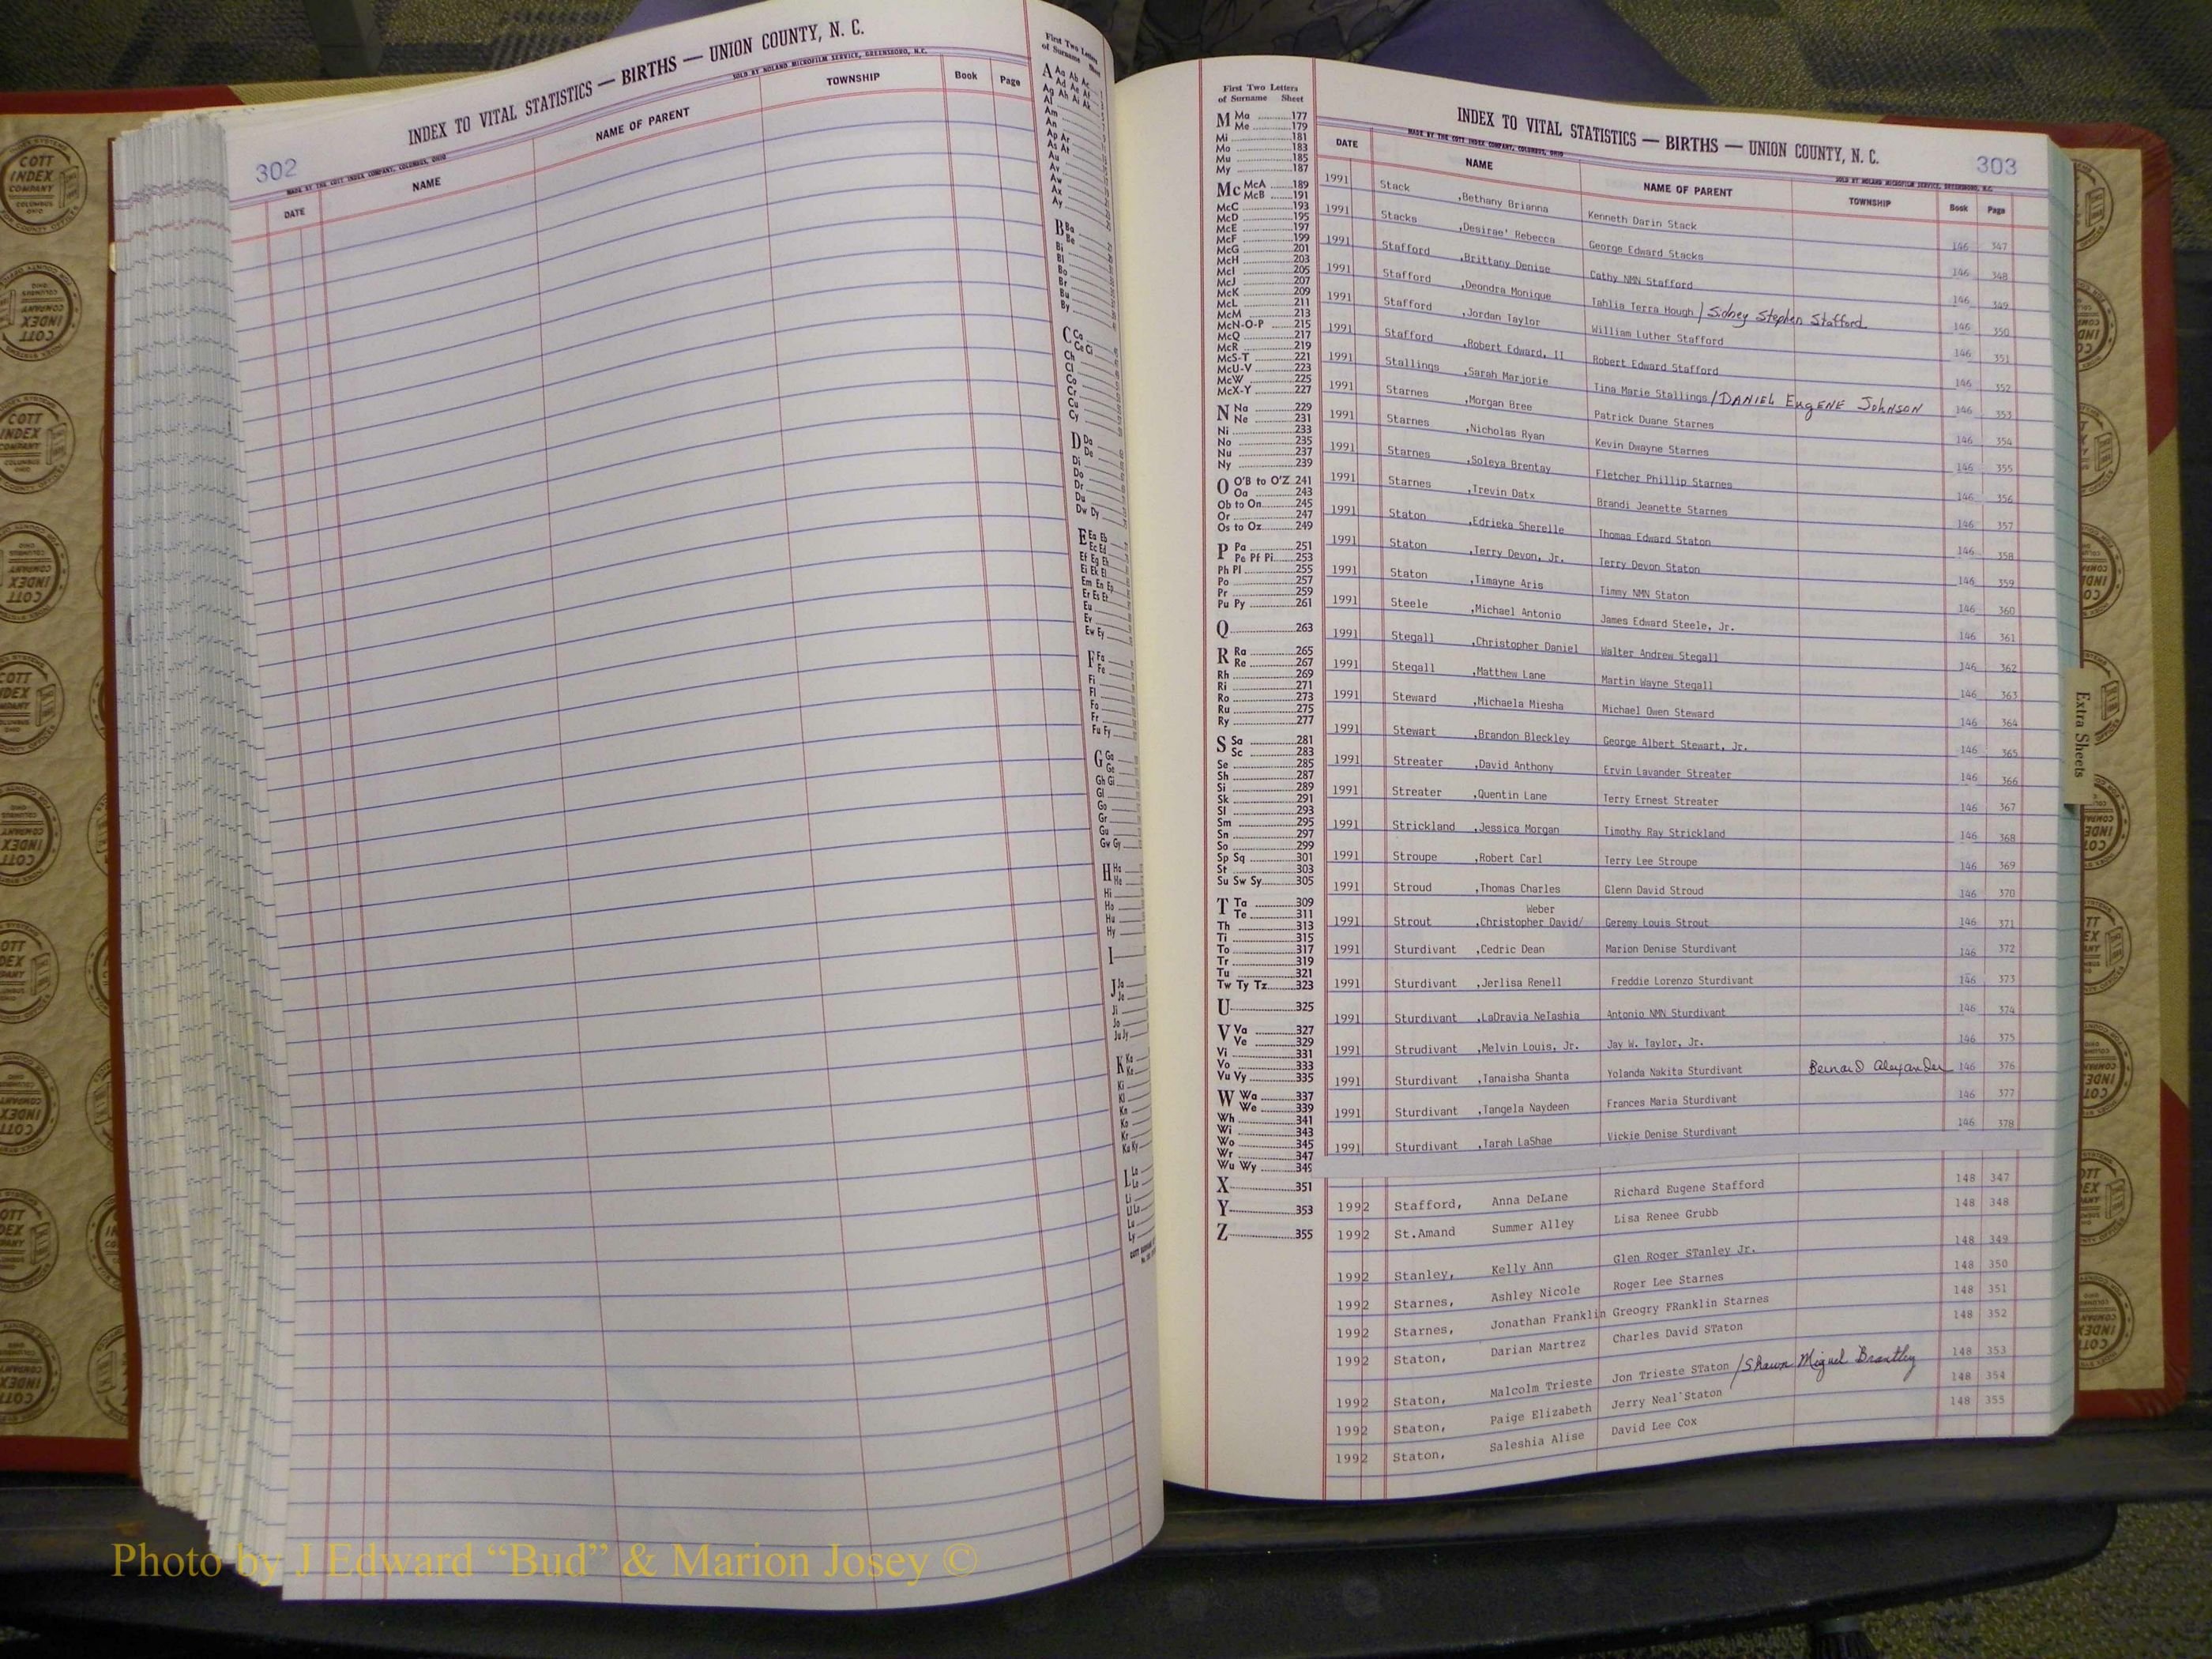 302
INDEX TO VITAL STATISTICS — BIRTHS — UNION COUNTY, N. C.
MADE BY THE COTT INDEX COMPANY, COLUMBUS, OHIO
SOLD BY NOLAND MICROFILM SERVICE, GREENSBORO, N.C.
DATE NAME NAME OF PARENT TOWNSHIP Book Page
First Two Letters
of Surname Sheet
A Aa Ab Ac
Ad Ae Af
Ag Ah Ai Ak
Al
Am
An
Ap Ar
As At
Au
Av
Aw
Ax
Ay
B Ba
Be
Bi
Bl
Bo
Br
Bu
By
C Ca
Ce Ci
Ch
Cl
Co
Cr
Cu
Cy
D Da
De
Di
Do
Dr
Du
Dw Dy
E Ea Eb
Ec Ed
Ef Eg Eh
Ei Ek El
Em En Ep
Er Es Et
Eu
Ev
Ew Ey
F Fa
Fe
Fi
Fl
Fo
Fr
Fu Fy
G Ga
Ge
Gh Gi
Gl
Go
Gr
Gu
Gw Gy
H Ha
He
Hi
Ho
Hu
Hy
I
J Ja
Je
Ji
Jo
Ju Jy
K Ka
Ke
Ki
Kl
Kn
Ko
Kr
Ku Ky
L La
Le
Li
Ll Lo
Lu
Ly
303
INDEX TO VITAL STATISTICS — BIRTHS — UNION COUNTY, N. C.
MADE BY THE COTT INDEX COMPANY, COLUMBUS, OHIO
SOLD BY NOLAND MICROFILM SERVICE, GREENSBORO, N.C.
DATE NAME NAME OF PARENT TOWNSHIP Book Page
First Two Letters
of Surname Sheet
M Ma 177
Me 179
Mi 181
Mo 183
Mu 185
My 187
Mc McA 189
McB 191
McC 193
McD 195
McE 197
McF 199
McG 201
McH 203
McI 205
McJ 207
McK 209
McL 211
McM 213
McN-O-P 215
McQ 217
McR 219
McS-T 221
McU-V 223
McW 225
McX-Y 227
N Na 229
Ne 231
Ni 233
No 235
Nu 237
Ny 239
O O'B to O'Z 241
Oa 243
Ob to On 245
Or 247
Os to Oz 249
P Pa 251
Pe Pf Pi 253
Ph Pl 255
Po 257
Pr 259
Pu Py 261
Q 263
R Ra 265
Re 267
Rh 269
Ri 271
Ro 273
Ru 275
Ry 277
S Sa 281
Sc 283
Se 285
Sh 287
Si 289
Sk 291
Sl 293
Sm 295
Sn 297
So 299
Sp Sq 301
St 303
Su Sw Sy 305
T Ta 309
Te 311
Th 313
Ti 315
To 317
Tr 319
Tu 321
Tw Ty Tz 323
U 325
V Va 327
Ve 329
Vi 331
Vo 333
Vu Vy 335
W Wa 337
We 339
Wh 341
Wi 343
Wo 345
Wr 347
Wu Wy 349
X 351
Y 353
Z 355
1991 Stack ,Bethany Brianna Kenneth Darin Stack 146 347
1991 Stacks ,Desirae' Rebecca George Edward Stacks 146 348
1991 Stafford ,Brittany Denise Cathy NMN Stafford 146 349
1991 Stafford ,Deondra Monique Tahlia Terra Hough / Sidney Stephen Stafford 146 350
1991 Stafford ,Jordan Taylor William Luther Stafford 146 351
1991 Stafford ,Robert Edward, II Robert Edward Stafford 146 352
1991 Stallings ,Sarah Marjorie Tina Marie Stallings / DANIEL EugENE JohNSON 146 353
1991 Starnes ,Morgan Bree Patrick Duane Starnes 146 354
1991 Starnes ,Nicholas Ryan Kevin Dwayne Starnes 146 355
1991 Starnes ,Soleya Brentay Fletcher Phillip Starnes 146 356
1991 Starnes ,Trevin Datx Brandi Jeanette Starnes 146 357
1991 Staton ,Edrieka Sherelle Thomas Edward Staton 146 358
1991 Staton ,Terry Devon, Jr. Terry Devon Staton 146 359
1991 Staton ,Timayne Aris Timmy NMN Staton 146 360
1991 Steele ,Michael Antonio James Edward Steele, Jr. 146 361
1991 Stegall ,Christopher Daniel Walter Andrew Stegall 146 362
1991 Stegall ,Matthew Lane Martin Wayne Stegall 146 363
1991 Steward ,Michaela Miesha Michael Owen Steward 146 364
1991 Stewart ,Brandon Bleckley George Albert Stewart, Jr. 146 365
1991 Streater ,David Anthony Ervin Lavander Streater 146 366
1991 Streater ,Quentin Lane Terry Ernest Streater 146 367
1991 Strickland ,Jessica Morgan Timothy Ray Strickland 146 368
1991 Stroupe ,Robert Carl Terry Lee Stroupe 146 369
1991 Stroud ,Thomas Charles Glenn David Stroud 146 370
Weber
1991 Strout ,Christopher David/ Geremy Louis Strout 146 371
1991 Sturdivant ,Cedric Dean Marion Denise Sturdivant 146 372
1991 Sturdivant ,Jerlisa Renell Freddie Lorenzo Sturdivant 146 373
1991 Sturdivant ,LaDravia NeTashia Antonio NMN Sturdivant 146 374
1991 Strudivant ,Melvin Louis, Jr. Jay W. Taylor, Jr. 146 375
1991 Sturdivant ,Tanaisha Shanta Yolanda Nakita Sturdivant Bernard Alexander 146 376
1991 Sturdivant ,Tangela Naydeen Frances Maria Sturdivant 146 377
1991 Sturdivant ,Tarah LaShae Vickie Denise Sturdivant 146 378
1992 Stafford, Anna DeLane Richard Eugene Stafford 148 347
1992 St.Amand Summer Alley Lisa Renee Grubb 148 348
1992 Stanley, Kelly Ann Glen Roger STanley Jr. 148 349
1992 Starnes, Ashley Nicole Roger Lee Starnes 148 350
1992 Starnes, Jonathan Franklin Greogry FRanklin Starnes 148 351
1992 Staton, Darian Martrez Charles David STaton 148 352
1992 Staton, Malcolm Trieste Jon Trieste STaton / Shawn Miguel Brantley 148 353
1992 Staton, Paige Elizabeth Jerry Neal Staton 148 354
1992 Staton, Saleshia Alise David Lee Cox 148 355
Extra Sheets
COTT
INDEX
COMPANY
COLUMBUS
OHIO
Photo by J Edward “Bud” & Marion Josey ©